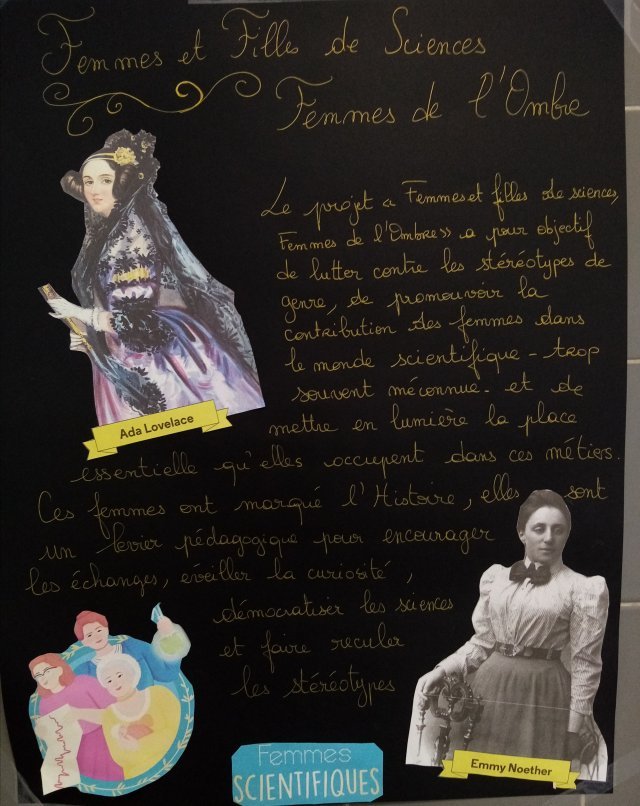 Femmes et Filles de Sciences
Femmes de l'Ombre
Le projet « Femmes et filles de sciences,
Femmes de l'Ombre » a pour objectif
de lutter contre les stéréotypes de
genre, de promouvoir la
contribution des femmes dans
le monde scientifique - trop
souvent méconnue - et de
mettre en lumière la place
essentielle qu'elles occupent dans ces métiers.
Ces femmes ont marqué l'Histoire, elles sont
un levier pédagogique pour encourager
les échanges, éveiller la curiosité,
démocratiser les sciences
et faire reculer
les stéréotypes
Ada Lovelace
Emmy Noether
Femmes
SCIENTIFIQUES